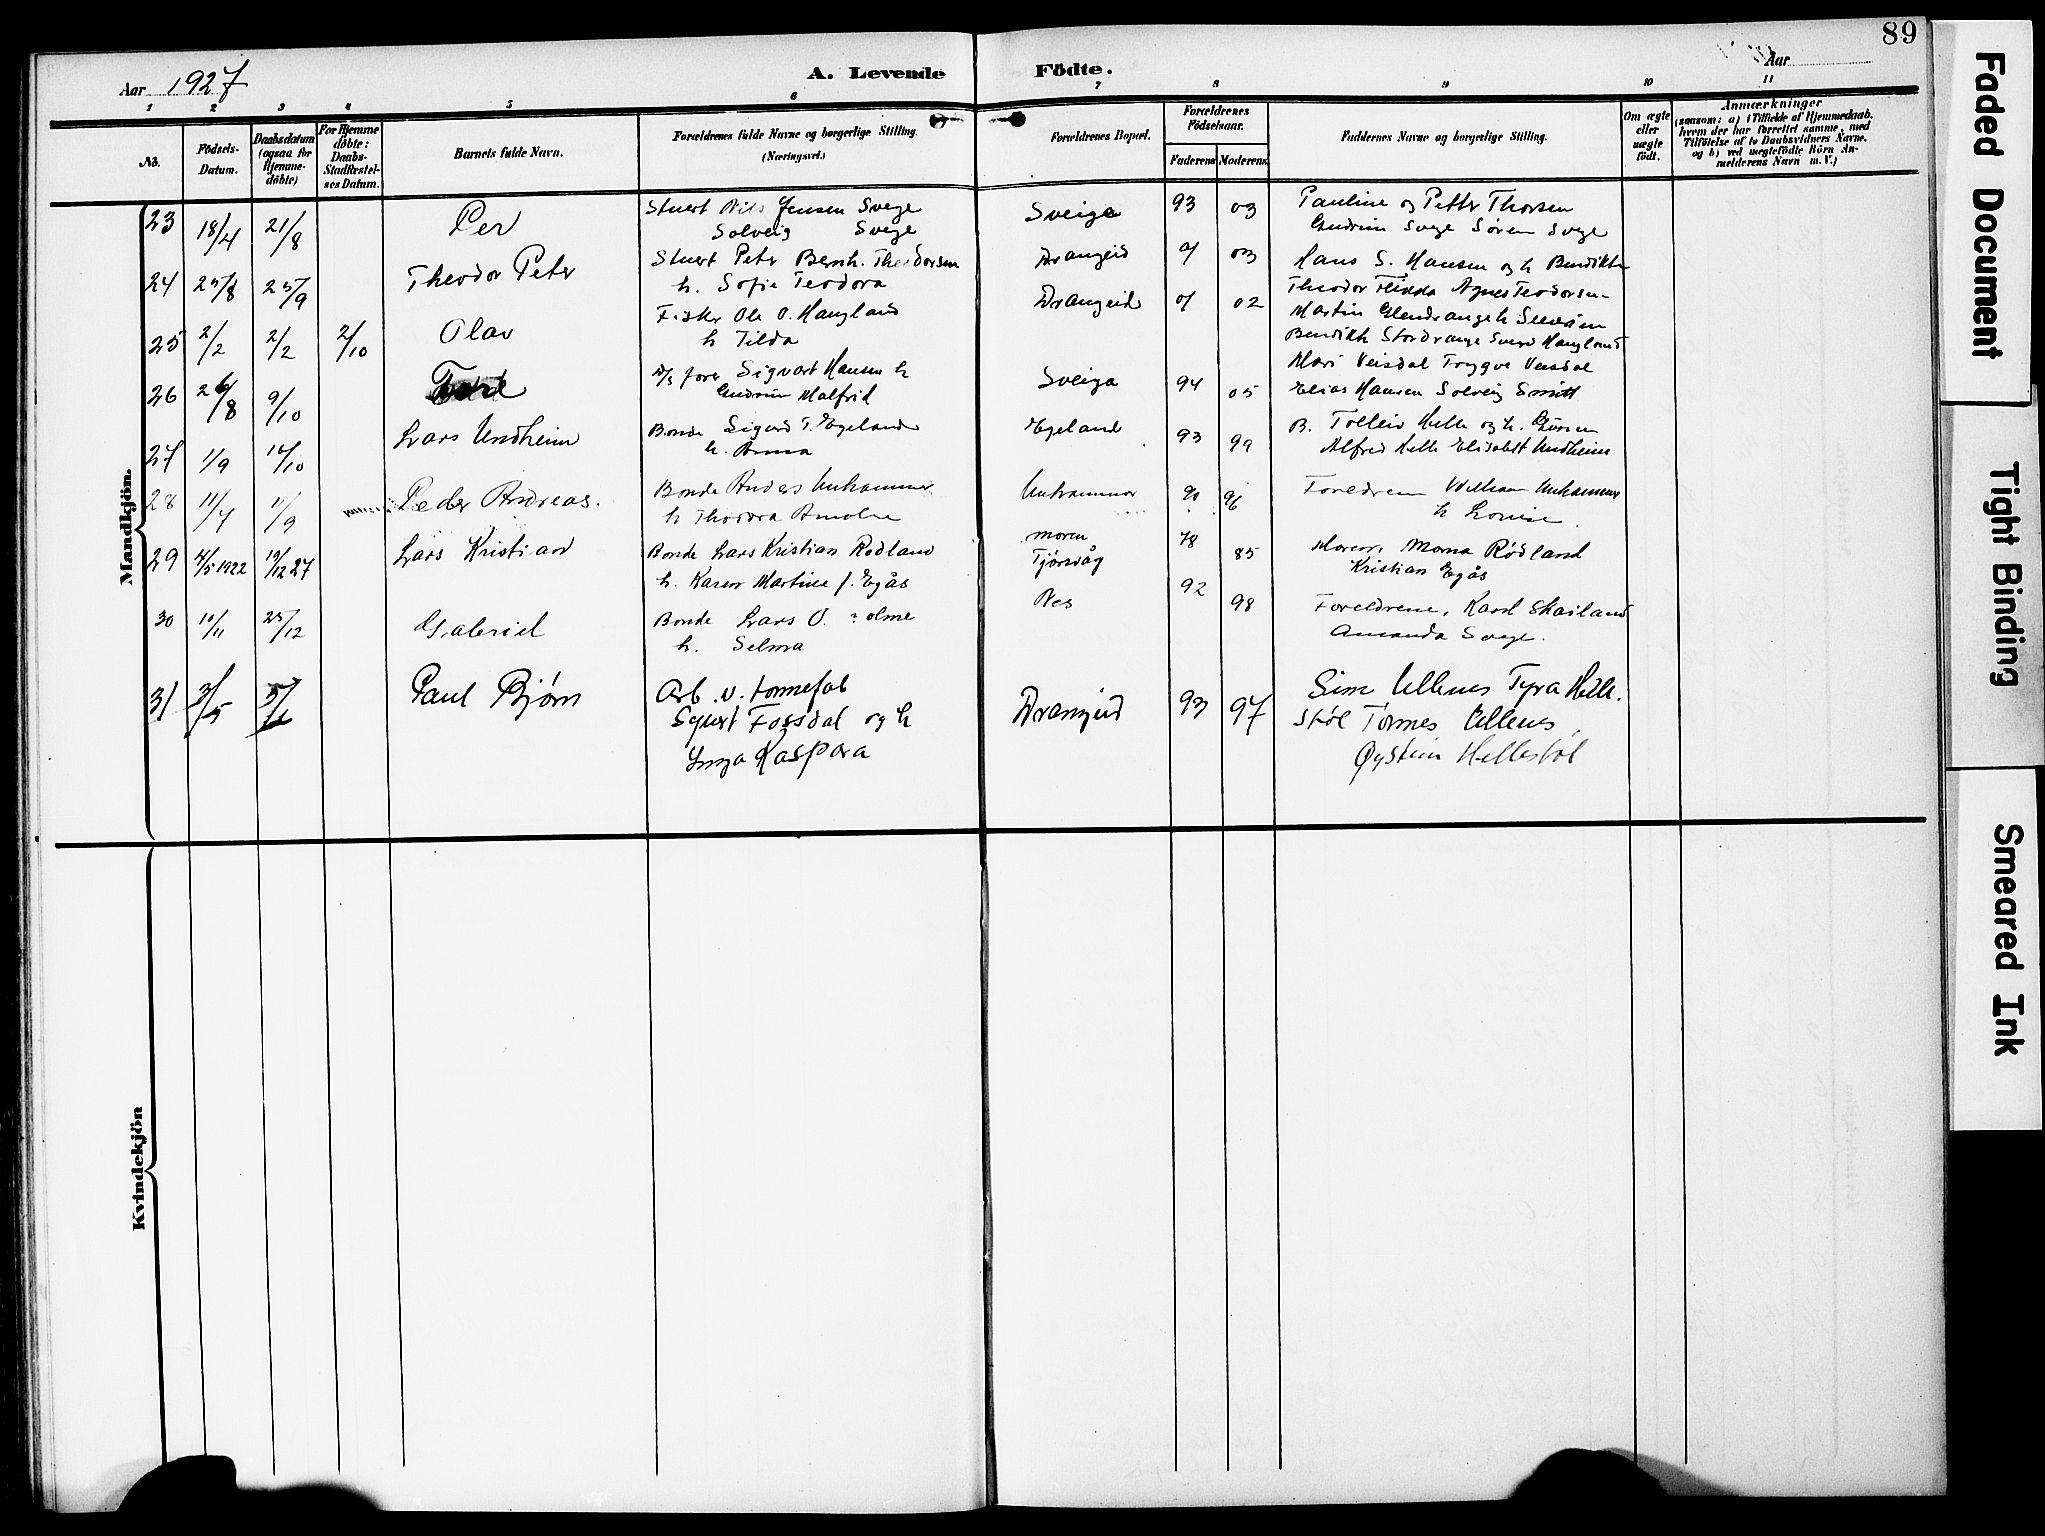 89
Aar 1927
A. Levende Födte.
Aar
1 2 3 4 5 6 7 8 9 10 11
No.
Födsels-
Datum.
Daabsdatum
(ogsaa for
Hjemme-
döbte)
For Hjemme
döbte:
Daabs-
Stadfæstel-
ses Datum.
Barnets fulde Navn.
Forældrenes fulde Navne og borgerlige Stilling.
(Næringsvei.)
Forældrenes Bopæl.
Forældrenes
Födselsaar.
Faderens Moderens
Faddernes Navne og borgerlige Stilling.
Om ægte
eller
uægte
födt.
Anmærkninger
(saasom: a) i Tilfælde af Hjemmedaab.
hvem der har forrettet samme, med
Tilföielse af to Daabsvidners Navne.
og b) ved uægtefödte Börn An-
melderens Navn m. V.)
Mandkjön.
23 18/4 21/8 Per
Nils Jensen Svege
Solveig Svege
Sveige 93 03
Pauline og Petter Thorsen
Gudrun Svege Søren Svege
24 25/8 25/9 Theodor Peter
Peter Bernh. Theodorsen
h. Sofie Teodora
Drangeid 01 03
Hans S. Hansen og h Bendikte
Theodor Agnes Teodorsen
25 2/2 2/2 2/10 Olav
Fisker Ole O. Haugland
h Tilda
Drangeid 01 02
Martin
26 26/8 9/10
Sigvart Hansen h
Gudrun Malfrid
Sveiga 94 05
Elias Hansen Solveig
27 1/9 Lars Undheim
Bonde Sigurd T. Egeland
h. Anna
Egeland 93 99
B. Tolleiv Helle og h.
Alfred Helle Elisabet Undheim
28 11/7 Peder Andreas.
Bonde Unhammer
h Theodora
Unhammer 90 96
Foreldrene William Unhammer
h Louise
29 1922 27 Lars Kristian
Bonde Lars Kristian Rødland
h. Karen Martine f. Egås
moren
Tjørsvåg 78 85
Moren, Rødland
Kristian Egås
30 10/11 25/12 Gabriel
Bonde Lars O.
h. Selma
Nes 92 98
Foreldrene, Karl
Amanda Svege.
31 3/5 Paul Bjørn
Arb. v. tønnefab
Fossdal og h
Inga Kaspara
Drangeid 93 97
Sim Ullenes Tyra Helle.
støl Tønnes Ullenes
Øystein Hellestøl
Kvindekjön
Faded Document
Tight Binding
Smeared Ink